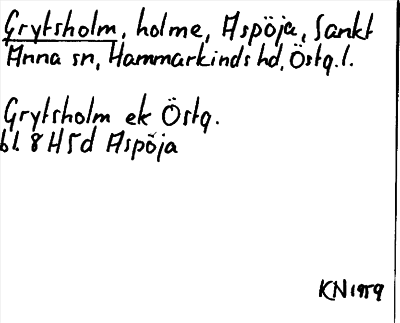 Grytsholm, holme, Aspöja, Sankt
Anna sn, Hammarkinds hd, Östg.l.
Grytsholm ek Östg.
bl. 8H5d Aspöja
KN 1959